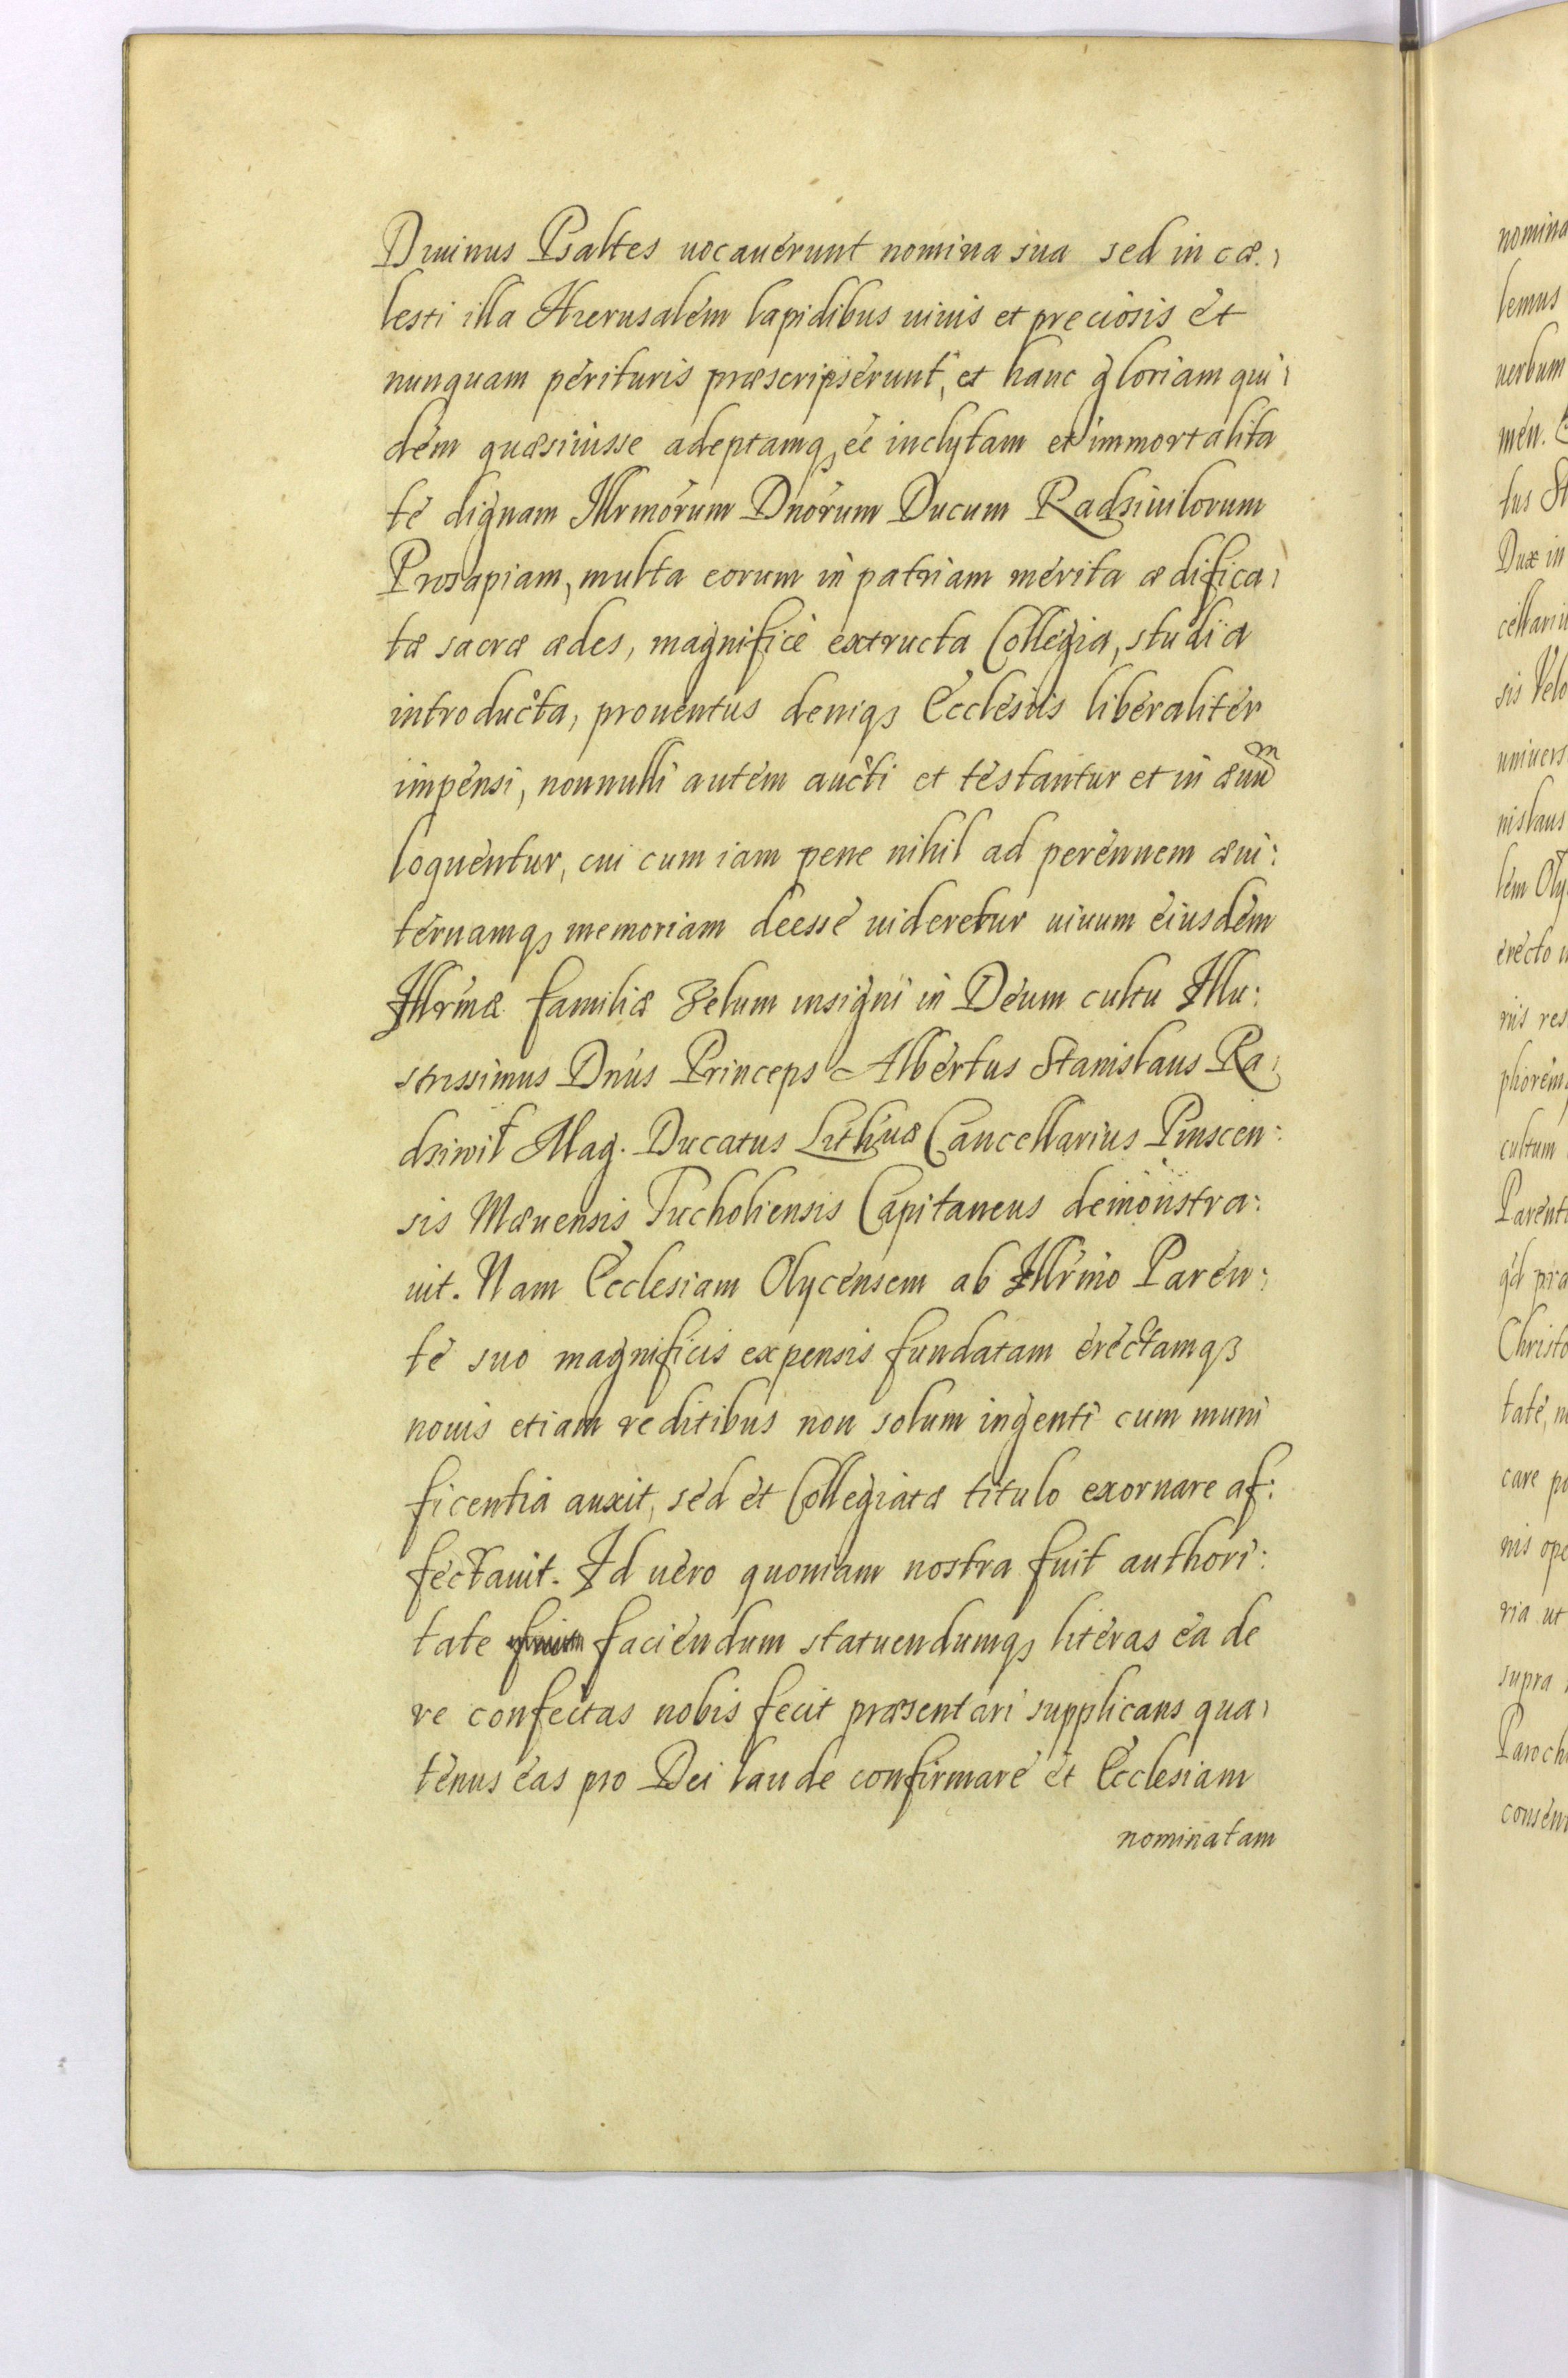 Diuinus Psaltes uocauerunt nomina sua sed in cæ
lesti illa Hierusalem lapidibus uiuis et preciosis et
nunquam perituris præscripserunt, et hanc gloriam qui
dem quæsiuisse adeptamq; eē inclytam et immortalita
te dignam Illrmorum Dnorum Ducum Radziuilorum
Prosapiam, multa eorum in patriam merita ædifica
tæ sacræ ædes, magnifice extructa Collegia, studia
introducta, prouentus deniq; Ecclesiis liberaliter
impensi, nonnulli autem aucti et testantur et in æuum
loquentur, cui cum iam pene nihil ad perennem æui:
ternamq; memoriam deesse uideretur uiuum eiusdem
Illrmæ familiæ Zelum insigni in Deum cultu Illu:
strissimus Dnus Princeps Albertus Stanislaus Ra
dziwil Mag. Ducatus Lithuæ Cancellarius Pinscen:
sis Mæuensis Tucholiensis Capitaneus demonstra:
uit. Nam Ecclesiam Olycensem ab Illrmo Paren:
te suo magnificis expensis fundatam erectamq;
nouis etiam reditibus non solum ingenti cum muni
ficentia auxit, sed et Collegiatæ titulo exornare af:
fectauit. Id uero quoniam nostra fuit authori:
tate faciendum statuendumq; literas ea de
re confectas nobis fecit præsentari supplicans qua
tenus eas pro Dei laude confirmare et Ecclesiam
nominatam
nomina
lemus
uerbum
men.
tus St
Dux in
cellariu
sis Velo
uniuers
nislaus
lem Oly
erecto
riis res
phorem
cultum
Parent
qd pra
Christo
tate,
care po
nis ope
ria ut
supra
Paroch
consen